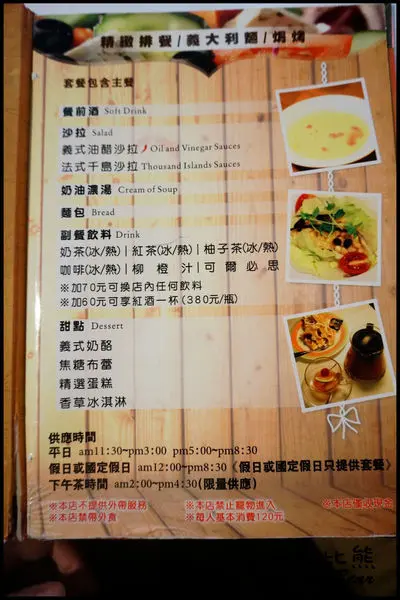 精緻排餐/義大利麵/焗烤
套餐包含主餐
餐前酒 Soft Drink
沙拉 Salad
義式油醋沙拉 Oil and Vinegar Sauces
法式千島沙拉 Thousand Islands Sauces
奶油濃湯 Cream of Soup
麵包 Bread
副餐飲料 Drink
奶茶(冰/熱)|紅茶(冰/熱)|柚子茶(冰/熱)
咖啡(冰/熱)|柳橙汁|可爾必思
※加70元可換店內任何飲料
※加60元可享紅酒一杯(380元/瓶)
甜點 Dessert
義式奶酪
焦糖布蕾
精選蛋糕
香草冰淇淋
供應時間
平日 am11:30~pm3:00 pm5:00~pm8:30
假日或國定假日 am12:00~pm8:30〈假日或國定假日只提供套餐〉
下午茶時間 am2:00~pm4:30(限量供應)
※本店不提供外帶服務 ※本店禁止寵物進入 ※本店僅收現金
※本店禁帶外食 ※每人基本消費120元
熊